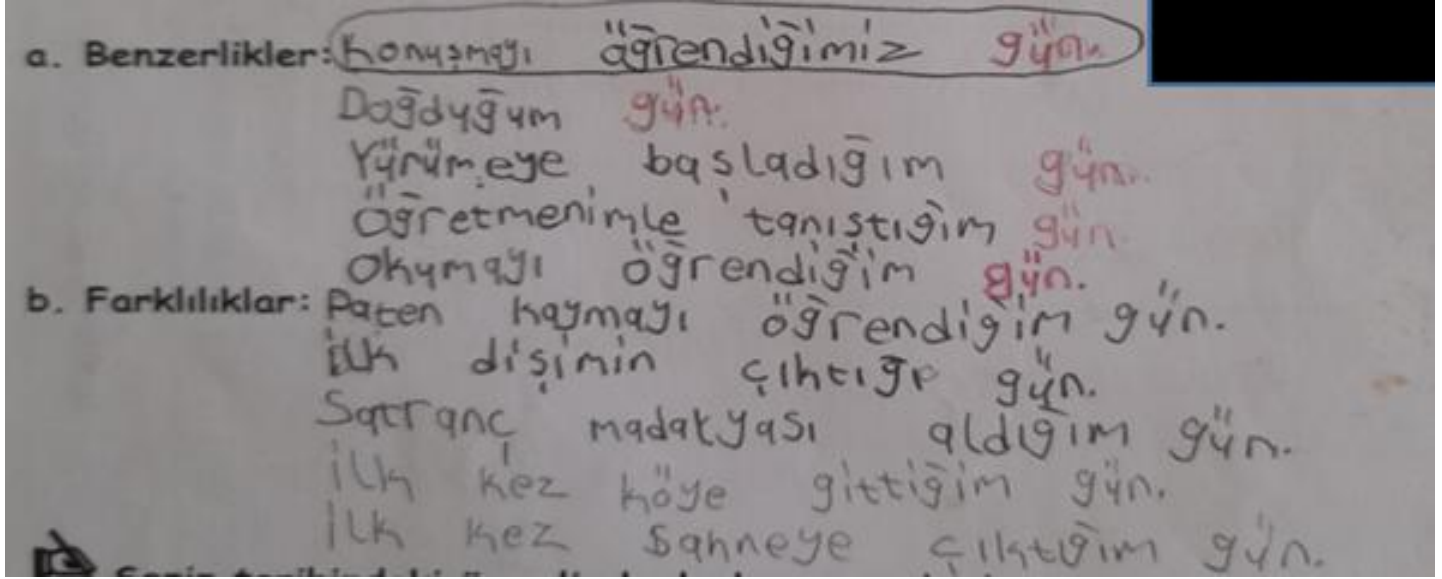 a. Benzerlikler: Konuşmayı öğrendiğimiz gün.
Doğduğum gün.
Yürümeye başladığım gün.
Öğretmenimle tanıştığım gün.
Okumayı öğrendiğim gün.
b. Farklılıklar: Paten kaymayı öğrendiğim gün.
İlk dişimin çıktığı gün.
Satranç madatyası aldığım gün.
İlk kez köye gittiğim gün.
İlk kez sahneye çıktığım gün.